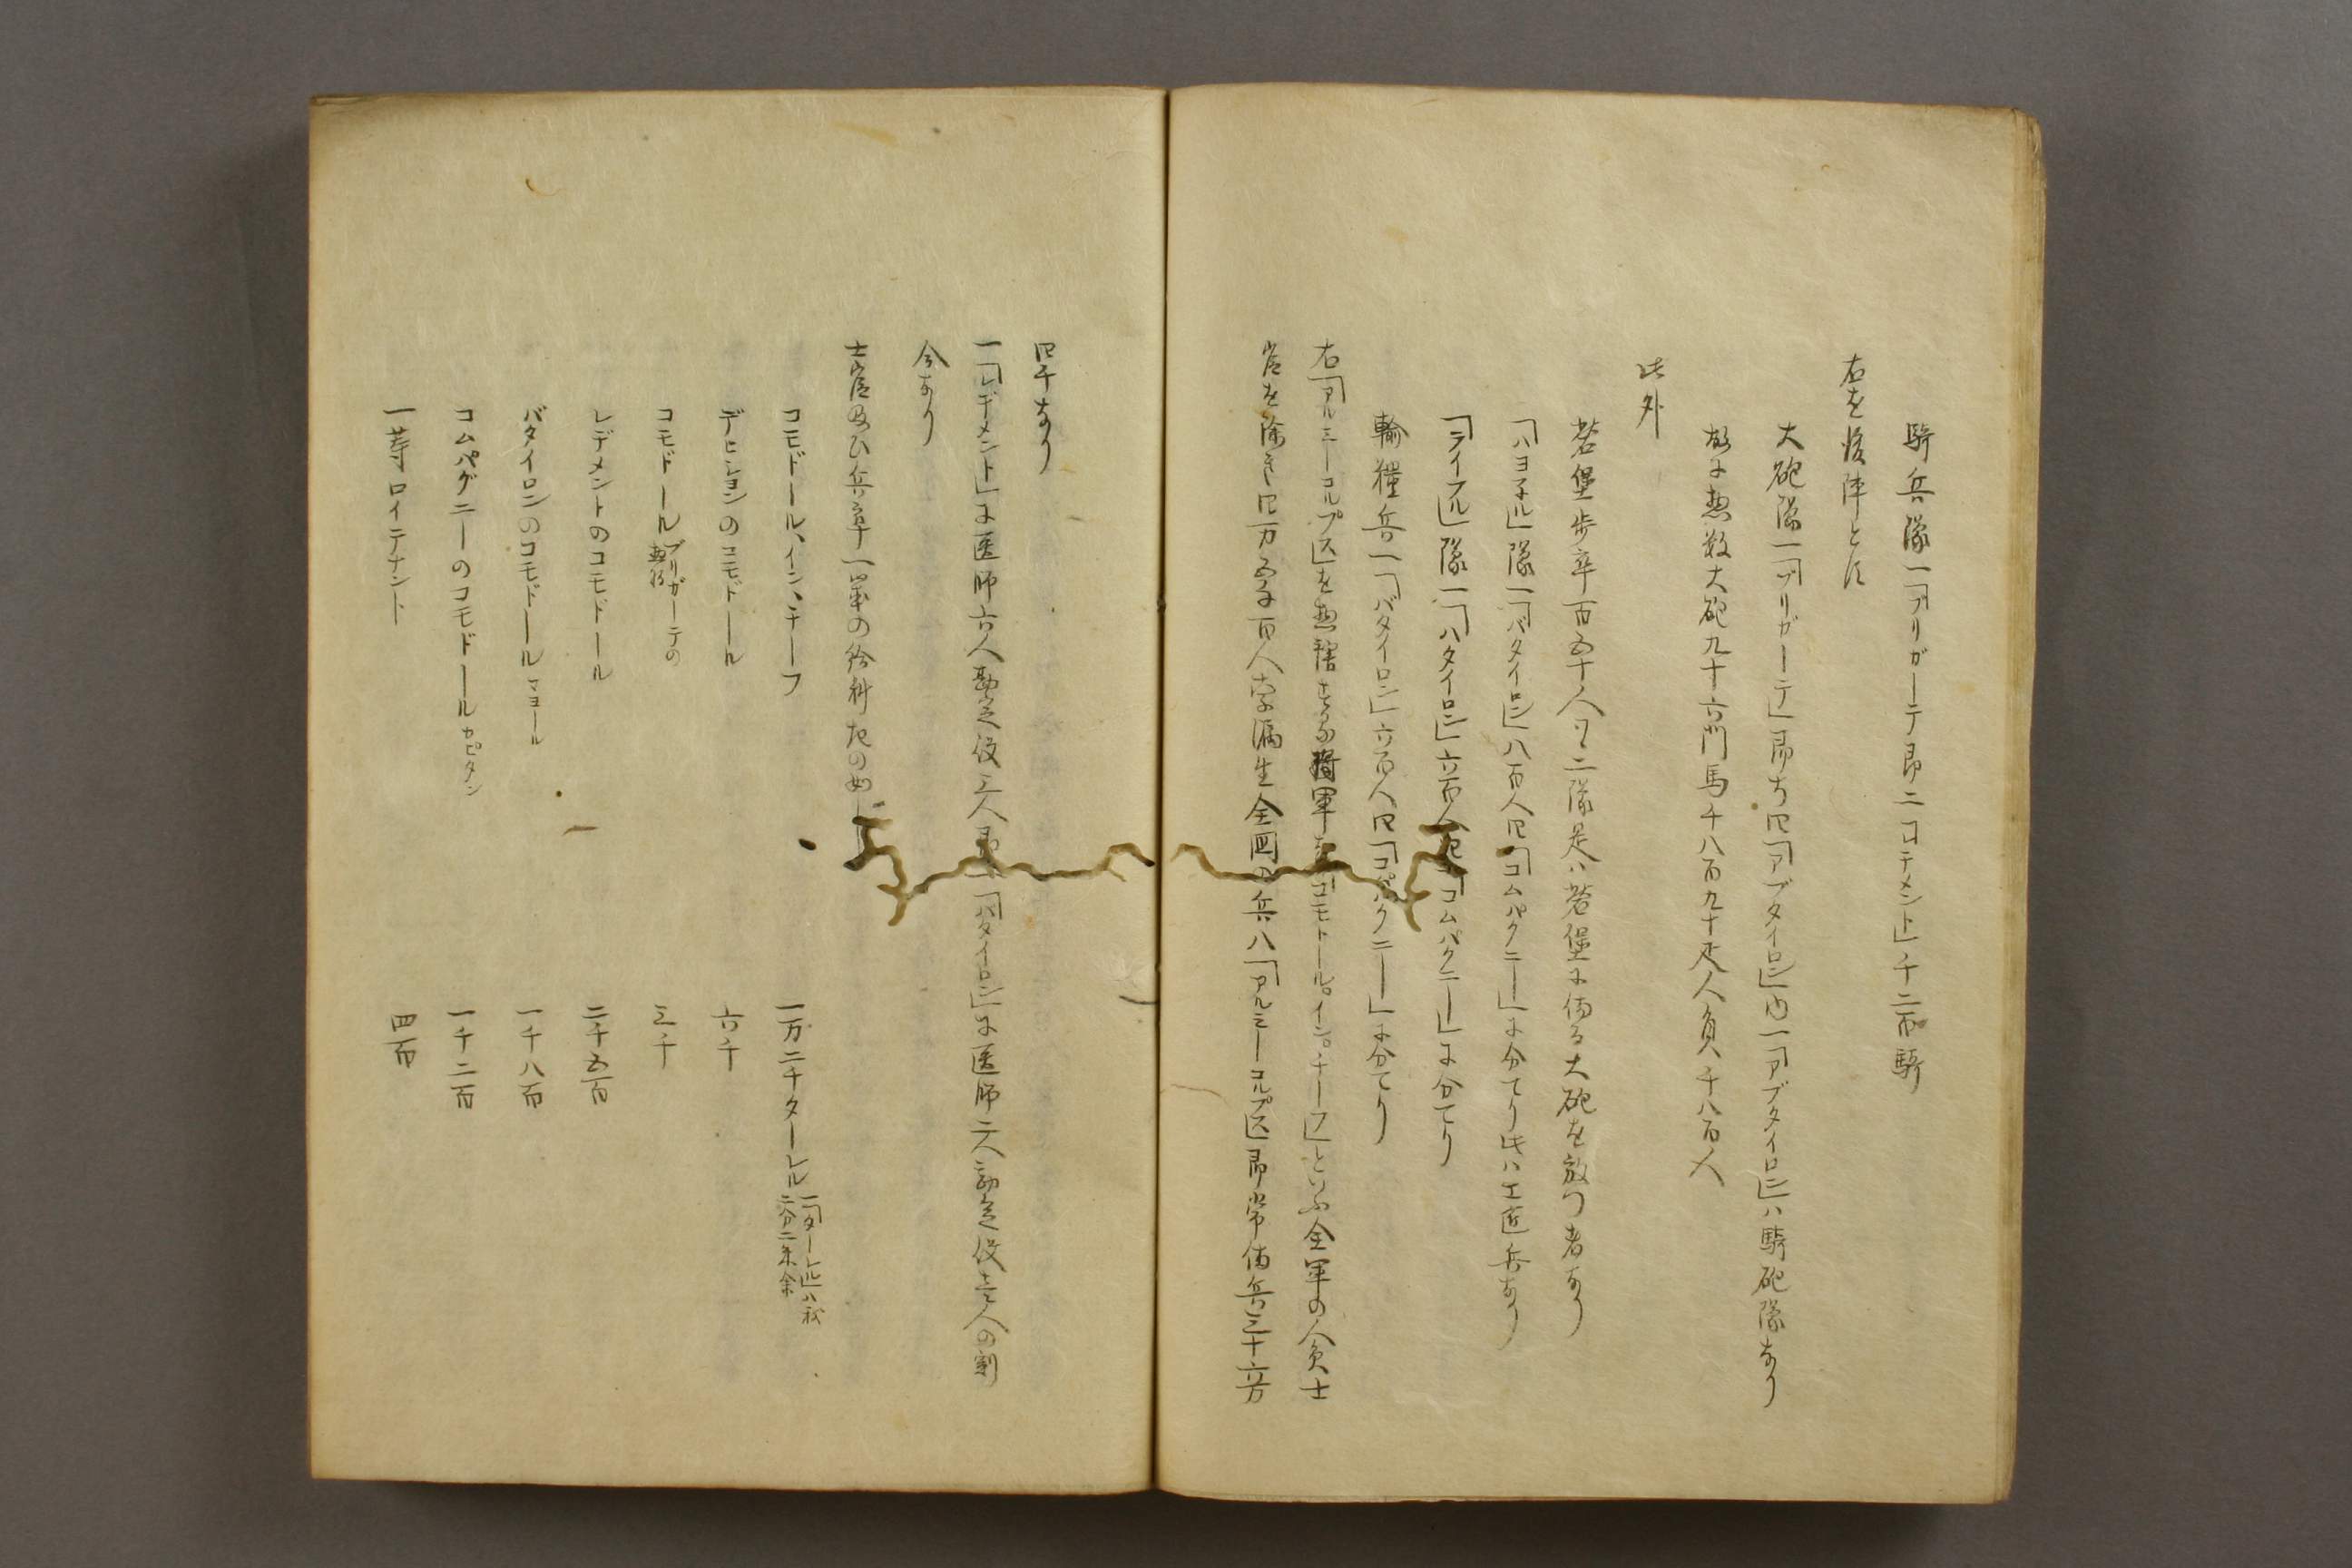 騎兵隊一「ブリガーテ即二「レテメント」千二百騎
右を後陣とす
大砲隊一「ブリガーテ」即ち四「アブタイロン」内一「アブタイロン」ハ騎砲隊なり
故に惣数大砲九十六門馬千八百九十疋人員千八百人
此外
砦堡歩卒百五十人ツヽ二隊是ハ砦堡に備る大砲を放つ者なり
「ハヨ子ル」隊一「バタイロン」八百人四「コムパクニー」に分てり此ハ工匠兵なり
「ライフル」隊一「ハタイロン」六百人四「コムパクニー」に分てり
輸糧兵一「バタイロン」六百人四「コムパクニー」に分てり
右「アルミーコルプス」を惣轄する将軍を「コモトール。イン。チーフ」といふ全軍の人員士
官を除き四万五千百人 全国の兵八「アルミーコルプス」即常備兵三十六万
四千なり
一「レギメント」に医師六人勘定役三人即一「バタイロン」に医師二人勘定役壱人の割
合なり
士官及ひ兵卒一年の給料左の如し
コモドール、イン、チーフ 一万二千ターレル 一「ターレル」ハ我二分二朱余
デヒションのコモドール 六千
コモドール ブリガーテの惣督 三千
レデメントのコモドール 二千五百
バタイロンのコモドール マヨール 一千八百
コムパグニーのコモドール カピタン 一千二百
一等ロイテナント 四百